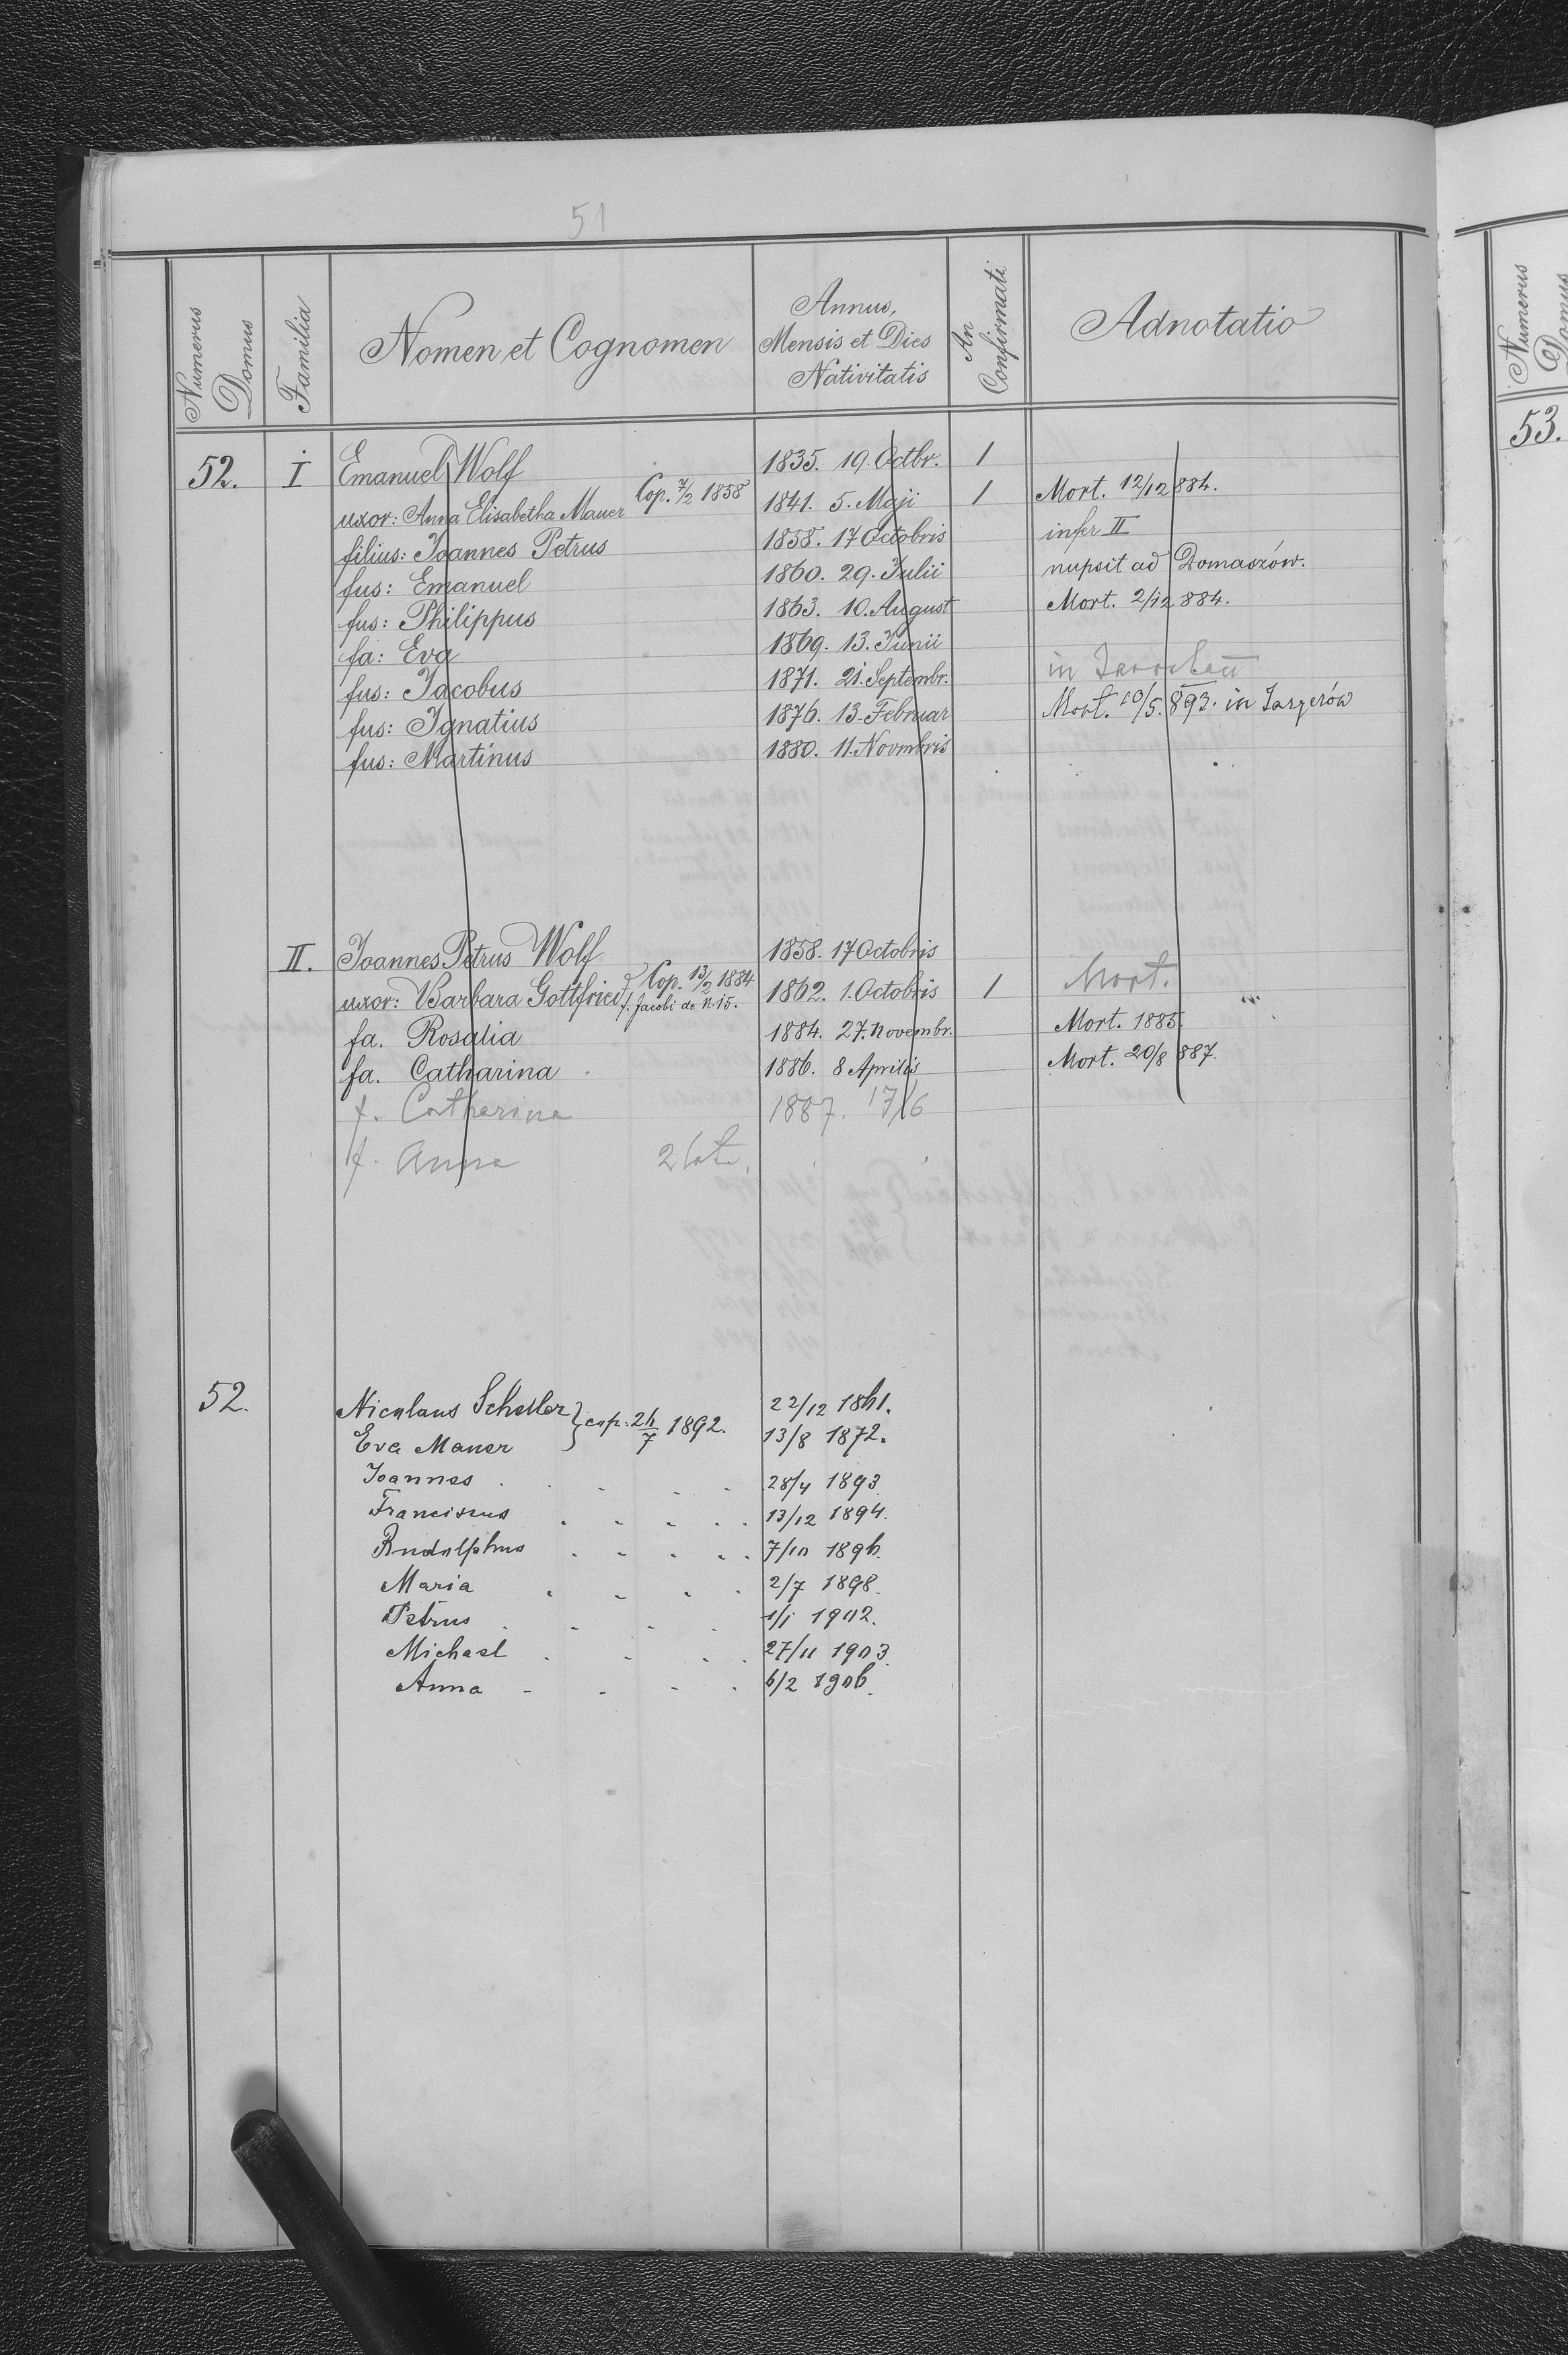 51
Numerus Domus Familia Nomen et Cognomen Annus, Mensis et Dies Nativitatis An Confirmati Adnotatio
52. I Emanuel Wolf 1835. 19. Octbr. 1
uxor: Anna Elisabetha Mauer Cop. 7/2 1858 1841. 5. Maji 1 Mort. 12/12 884.
filius: Joannes Petrus 1858. 17 Octobris infer II
fus: Emanuel 1860. 29. Julii nupsit ad Domaszów.
fus: Philippus 1863. 10. August Mort. 2/12 884.
fa: Eva 1869. 13. Junii
fus: Jacobus 1871. 21. Septembr. in
fus: Ignatius 1876. 13. Februar Mort. 10/5. 893. in
fus: Martinus 1880. 11. Novmbris
II. Joannes Petrus Wolf 1858. 17 Octobris
uxor: Barbara Gottfried Cop. 13/2 1884 f. Jacobi de N. 15. 1862. 1. Octobris 1 Mort.
fa. Rosalia 1884. 27. Novembr. Mort. 1885.
fa. Catharina 1886. 8 Aprilis Mort. 20/8 887.
f. Catharina 1887. 17/6
f. Anna
52. Nicolaus Scheller } cop. 26/7 1892. 22/12 1861.
Eva Mauer 13/8 1872.
Joannes 28/4 1893.
Franciscus 13/12 1894.
Rudolphus 7/10 1896.
Maria 2/7 1898.
Petrus 1/1 1902.
Michael 27/11 1903.
Anna 6/2 1906.
Numerus Domus
53.